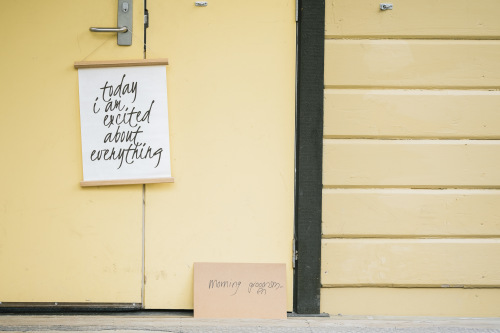 today
i am
excited
about
everything
morning